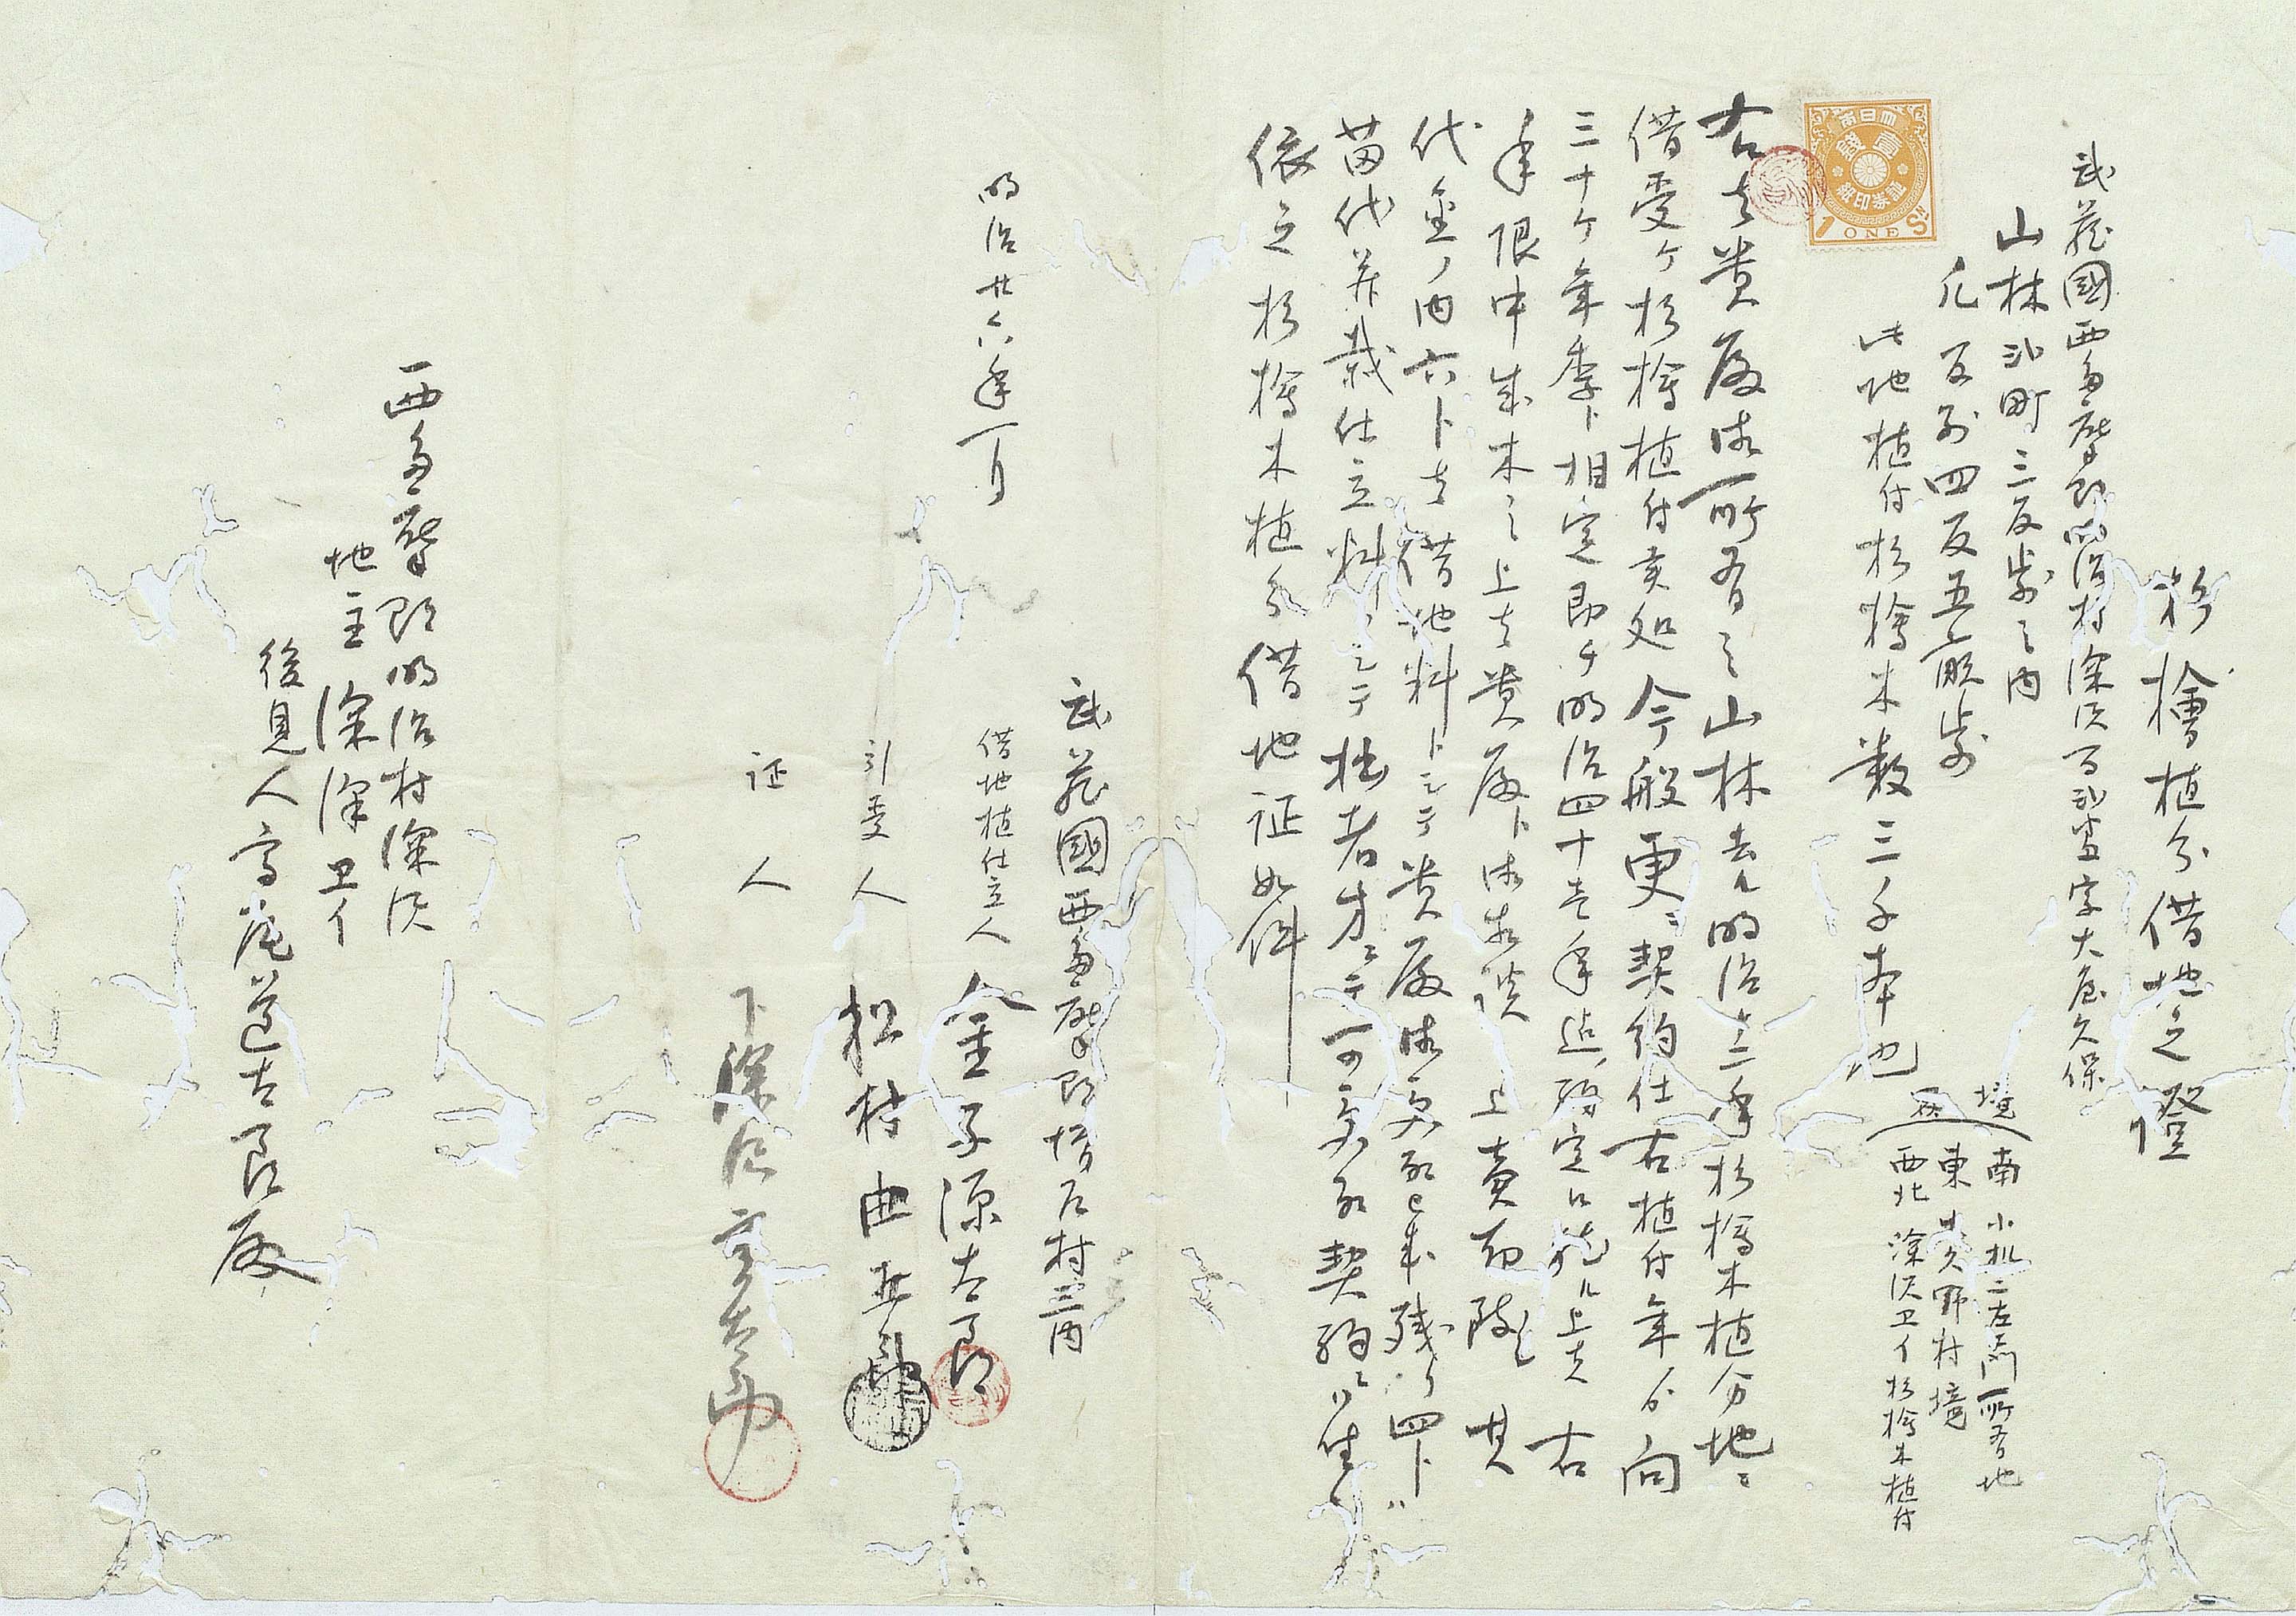 杉檜植分借地之證
武蔵國西多摩郡明治村深沢百弐番字大岳久保
山林弐町三反歩之内
凡反別四反五畝歩
此地植付杉檜木数三千本也
境
南小机三左衛門所有地
東草久野村境
西北深沢卫イ杉檜木植付
大日本帝國
壹錢
証券印紙
1 ONE Sⁿ
右者貴殿御所有之山林去ル明治十三年杉檜木植分地ニ
借受ケ杉檜植付来処今般更ニ契約仕右植付年ゟ向
三十ケ年季ト相定即チ明治四十壱年迄確定候然ル上者右
年限中成木之上者貴殿ト御相談ノ上賣却致シ其
代金ノ内六卜者借地料トシテ貴殿御受取被成残リ四卜ハ
苗代并栽仕立料ニシテ拙者方ニテ可受取契約ニ御座候
依之杉檜木植分借地証如件
明治廿六年一月
武蔵國西多摩郡増戸村三内
借地植仕立人
金子源太郎
引受人
松村由五郎
証人
下深沢宇太郎
西多摩郡明治村深沢
地主 深沢卫イ
後見人 高尾道太良殿